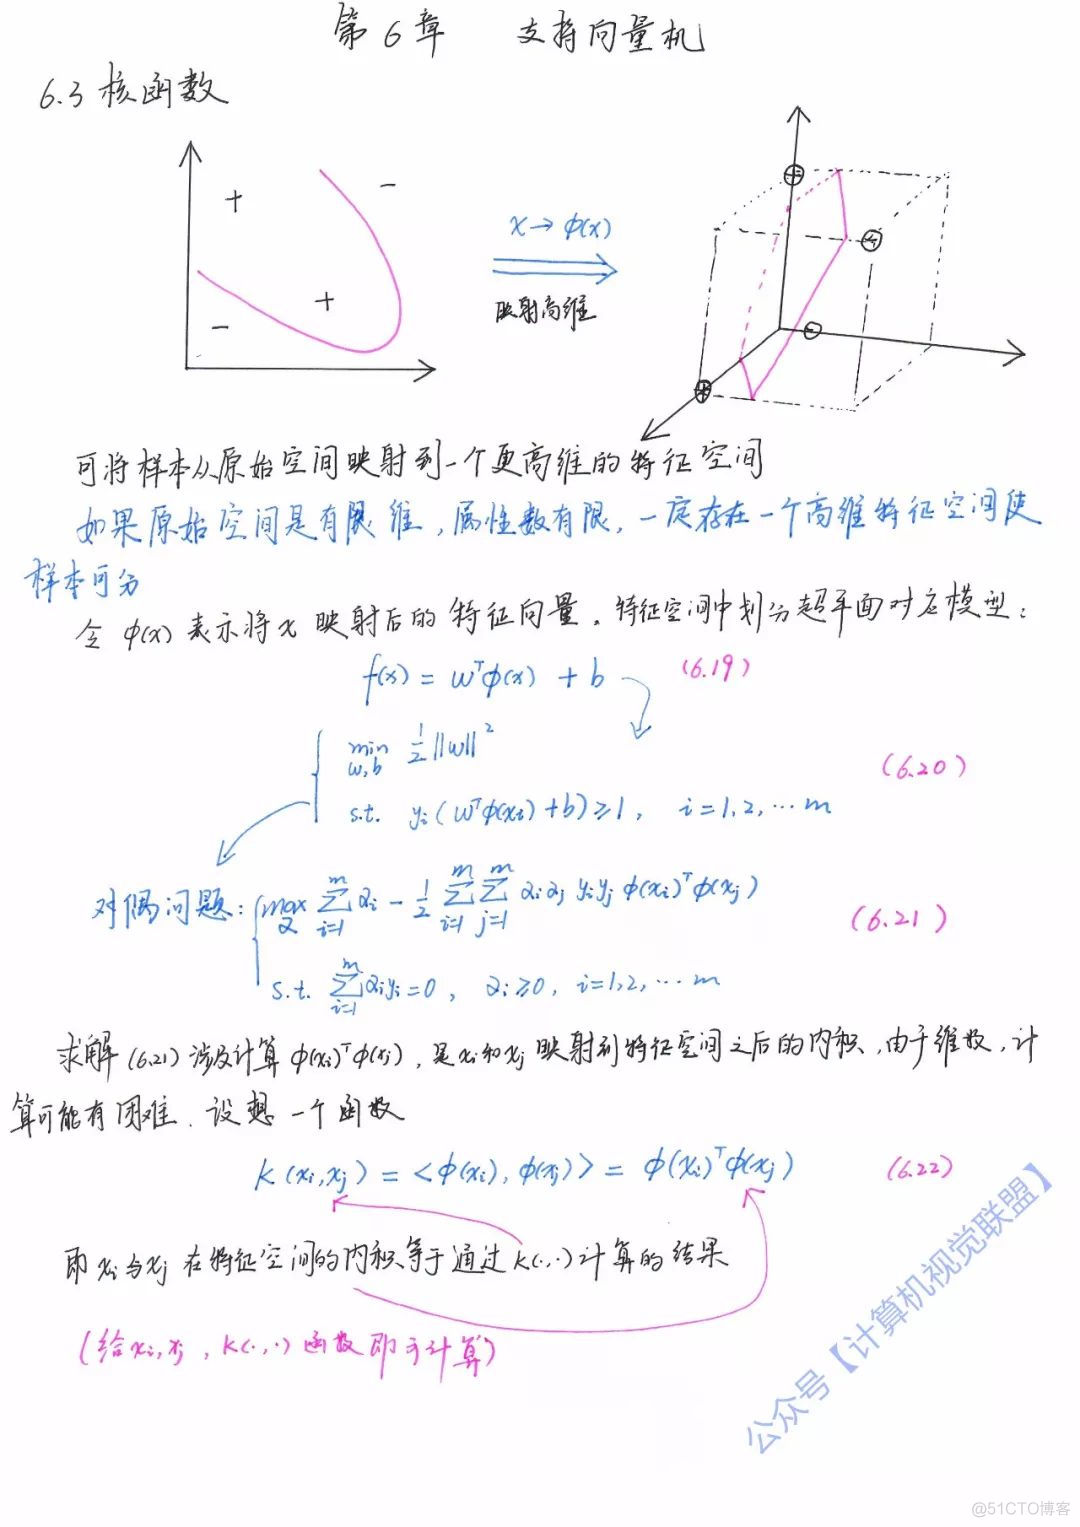 第6章 支持向量机
6.3 核函数
+
-
+
-
x → φ(x)
映射高维
+
+
-
可将样本从原始空间映射到一个更高维的特征空间
如果原始空间是有限维,属性数有限,一定存在一个高维特征空间使
样本可分
令 φ(x) 表示将x 映射后的特征向量。特征空间中划分超平面对应模型:
f(x) = wᵀφ(x) + b (6.19)
min w,b ½||w||²
(6.20)
s.t. yᵢ(wᵀφ(xᵢ)+b)≥1, i=1,2,…m
对偶问题: max α ∑ᵢ₌₁ᵐ αᵢ - ½ ∑ᵢ₌₁ᵐ ∑ⱼ₌₁ᵐ αᵢαⱼ yᵢyⱼ φ(xᵢ)ᵀφ(xⱼ) (6.21)
s.t. ∑ᵢ₌₁ᵐ αᵢyᵢ=0, αᵢ≥0, i=1,2,…m
求解(6.21)涉及计算 φ(xᵢ)ᵀφ(xⱼ), 是xᵢ和xⱼ映射到特征空间之后的内积,由于维数,计
算可能有困难. 设想一个函数
k(xᵢ,xⱼ) = <φ(xᵢ),φ(xⱼ)> = φ(xᵢ)ᵀφ(xⱼ) (6.22)
即xᵢ与xⱼ在特征空间的内积等于通过k(·,·)计算的结果
(给xᵢ,xⱼ,k(·,·)函数即可计算)
公众号【计算机视觉联盟】
@51CTO博客